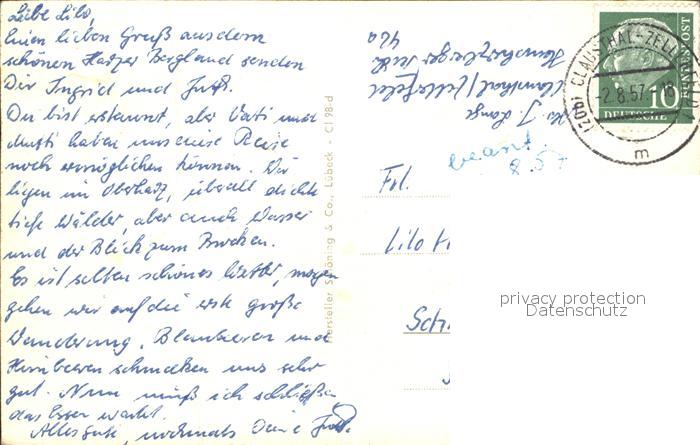 Liebe Lilo,
Einen lieben Gruß aus dem
schönen Harzer Bergland senden
Dir Ingrid und
Du bist erstaunt, aber Vati und
Mutti haben uns eine Reise
noch ermöglichen können. Wir
liegen im Oberharz, überall dichte
tiefe Wälder, aber auch Wasser
und der Blick zum Brocken.
Es ist selten schönes Wetter, morgen
gehen wir auf die erste große
Wanderung. Blaubeeren und
Himbeeren schmecken uns sehr
gut. Nun muß ich schließen
das Essen wartet.
Alles gute, nochmals Deine
Hersteller Schöning & Co., Lübeck - Cl 98-d
J. Lange
Clausthal/Zellerfeld
42a
beant.
8.57
Frl.
Lilo H
Sch
(20b) CLAUSTHAL-ZELL
-2.8.57.-18
m
10
DEUTSCHE
BUNDESPOST
privacy protection
Datenschutz